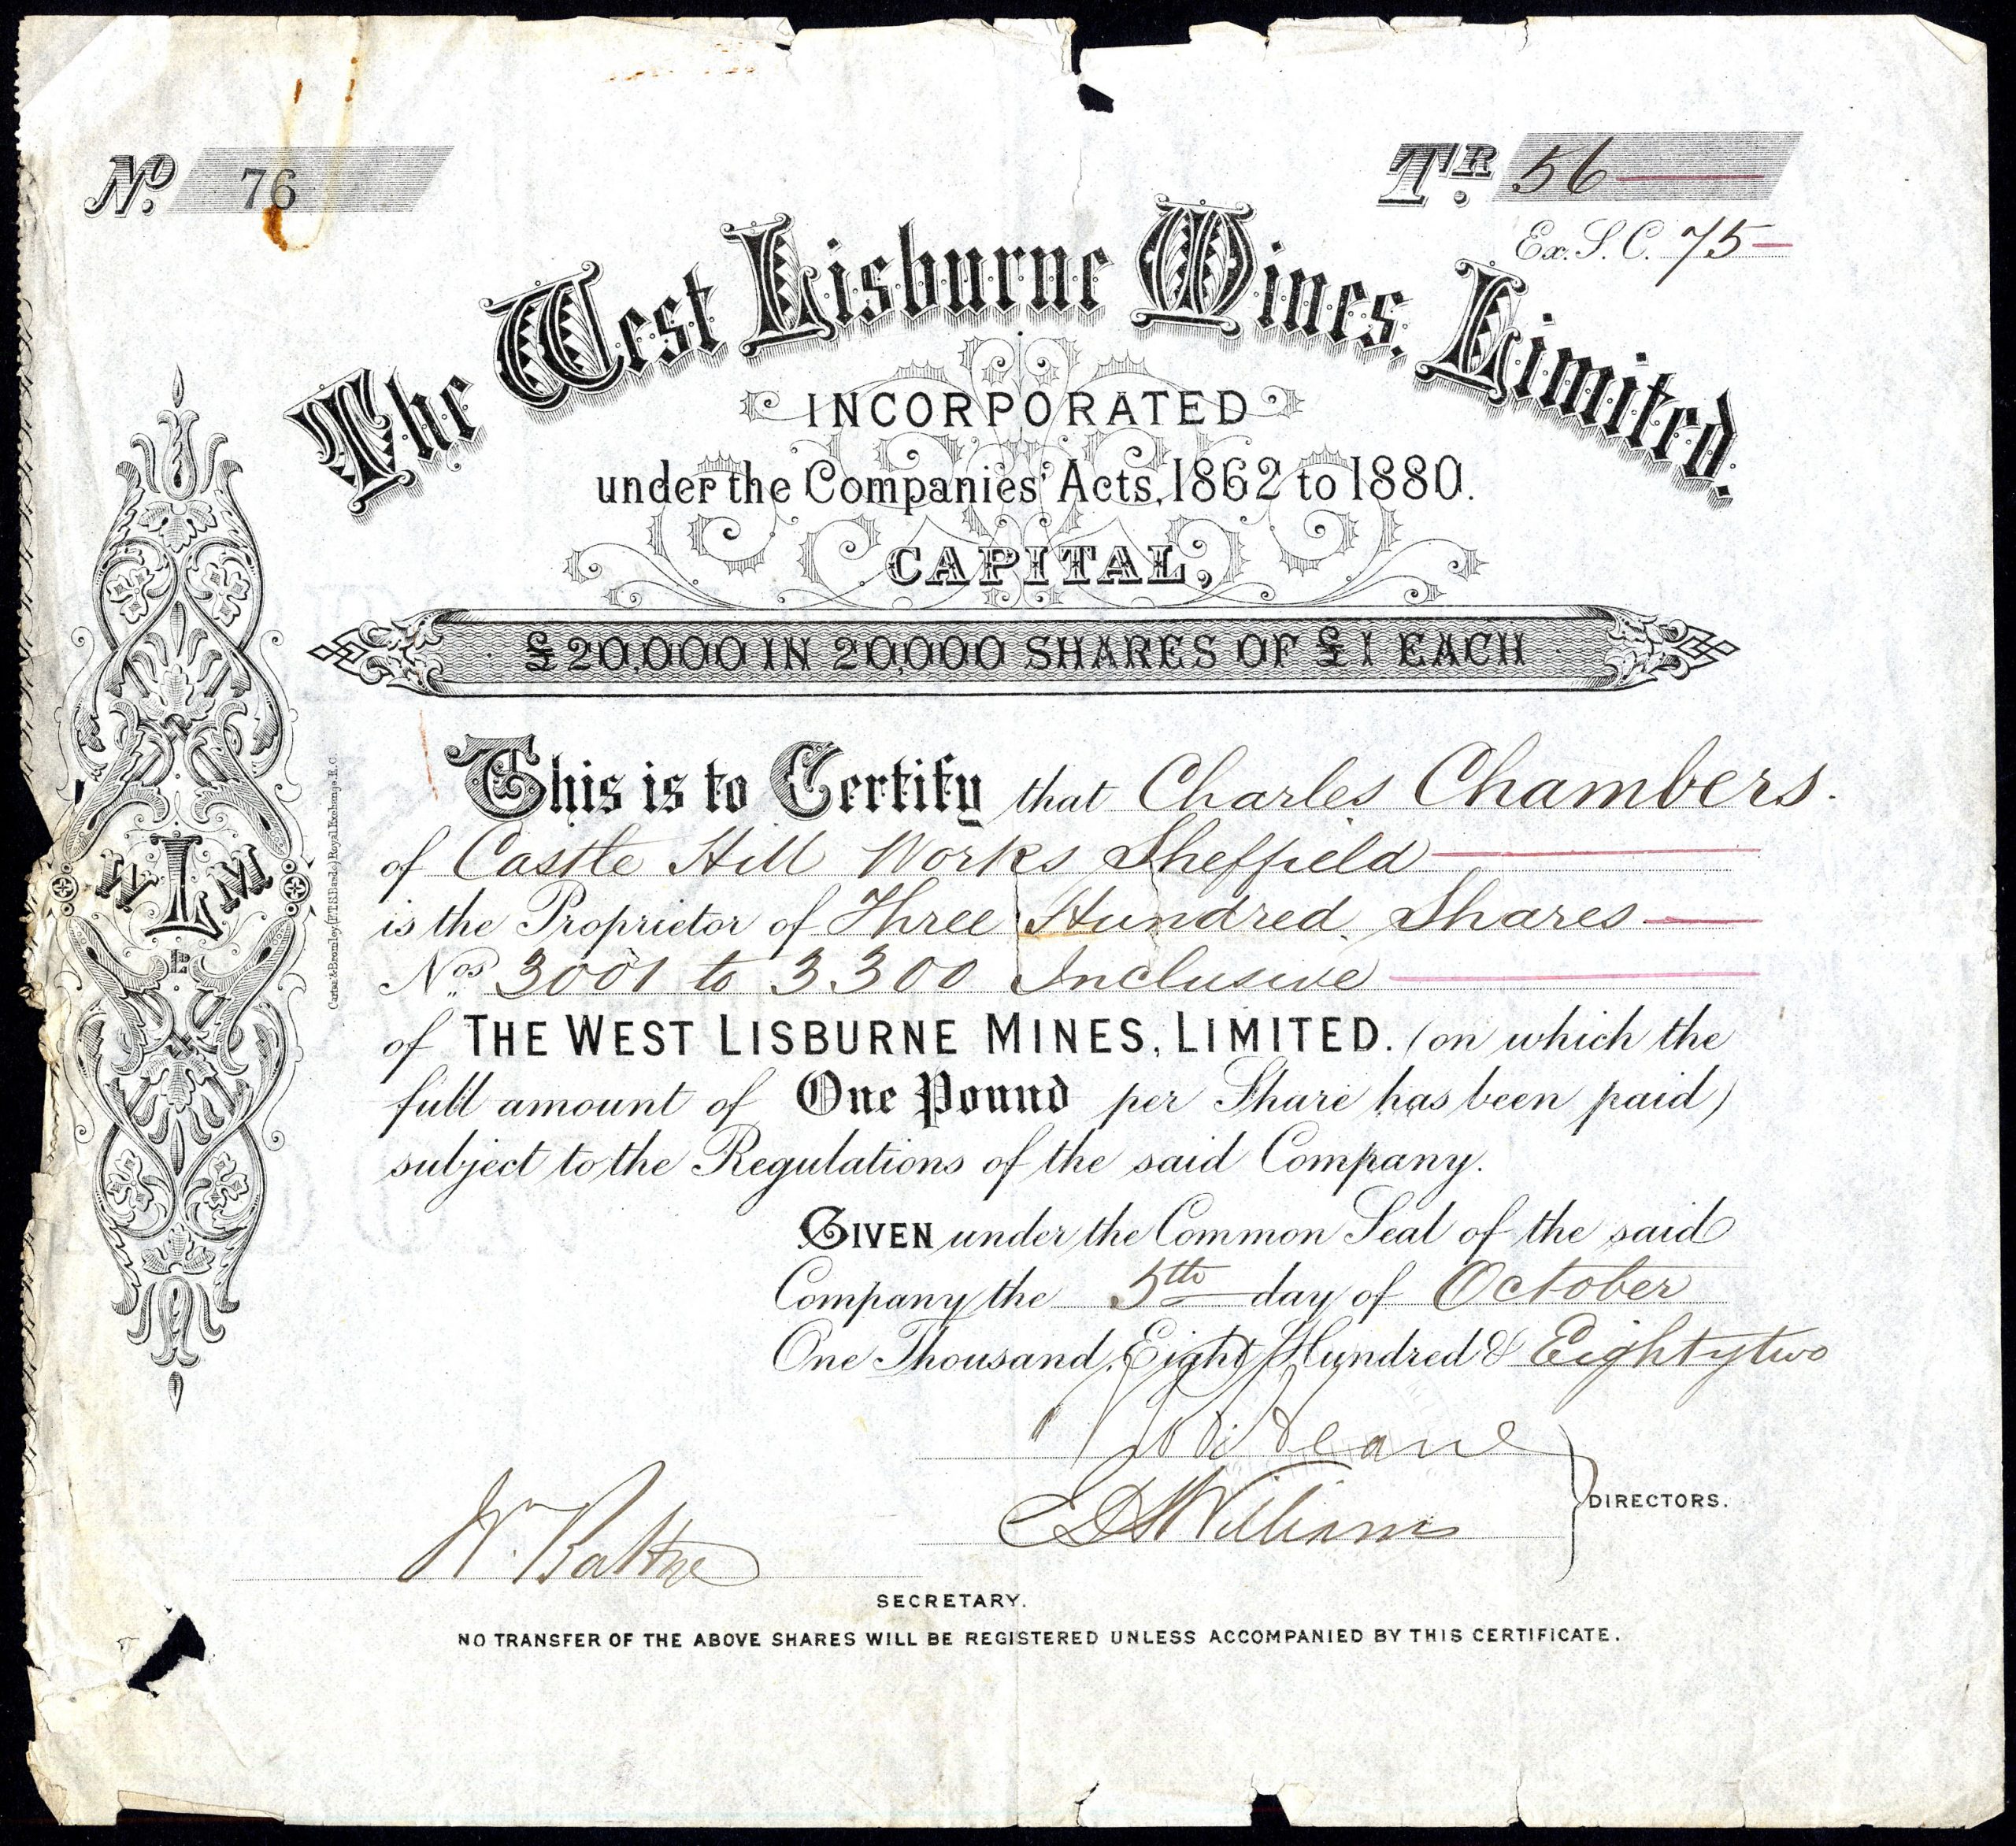 No. 76
TR. 56
Ex. S. C. 75
The West Lisburne Mines, Limited.
INCORPORATED
under the Companies' Acts, 1862 to 1880.
CAPITAL,
£20,000 IN 20,000 SHARES OF £1 EACH
This is to Certify that Charles Chambers.
of Castle Hill Works Sheffield
is the Proprietor of Three Hundred Shares
Nos 3001 to 3300 Inclusive
of THE WEST LISBURNE MINES, LIMITED. (on which the
full amount of One Pound per Share has been paid)
subject to the Regulations of the said Company.
GIVEN under the Common Seal of the said
Company the 5th day of October
One Thousand, Eight Hundred & Eighty two
Williams
DIRECTORS.
SECRETARY.
NO TRANSFER OF THE ABOVE SHARES WILL BE REGISTERED UNLESS ACCOMPANIED BY THIS CERTIFICATE.
W L M
LD
Carter & Bromley, Royal Exchange, E.C.